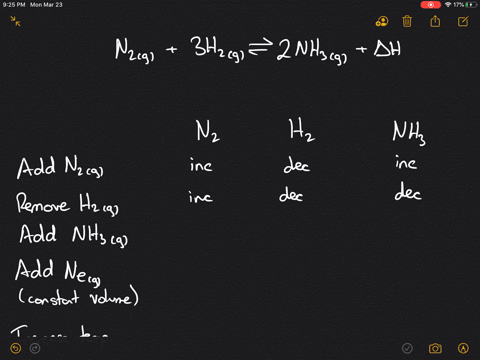 9:25 PM Mon Mar 23 17%
N₂(g) + 3H₂(g) ⇌ 2NH₃(g) + ΔH
N₂ H₂ NH₃
Add N₂(g) inc dec inc
Remove H₂(g) inc dec dec
Add NH₃(g)
Add Ne(g)
(constant volume)